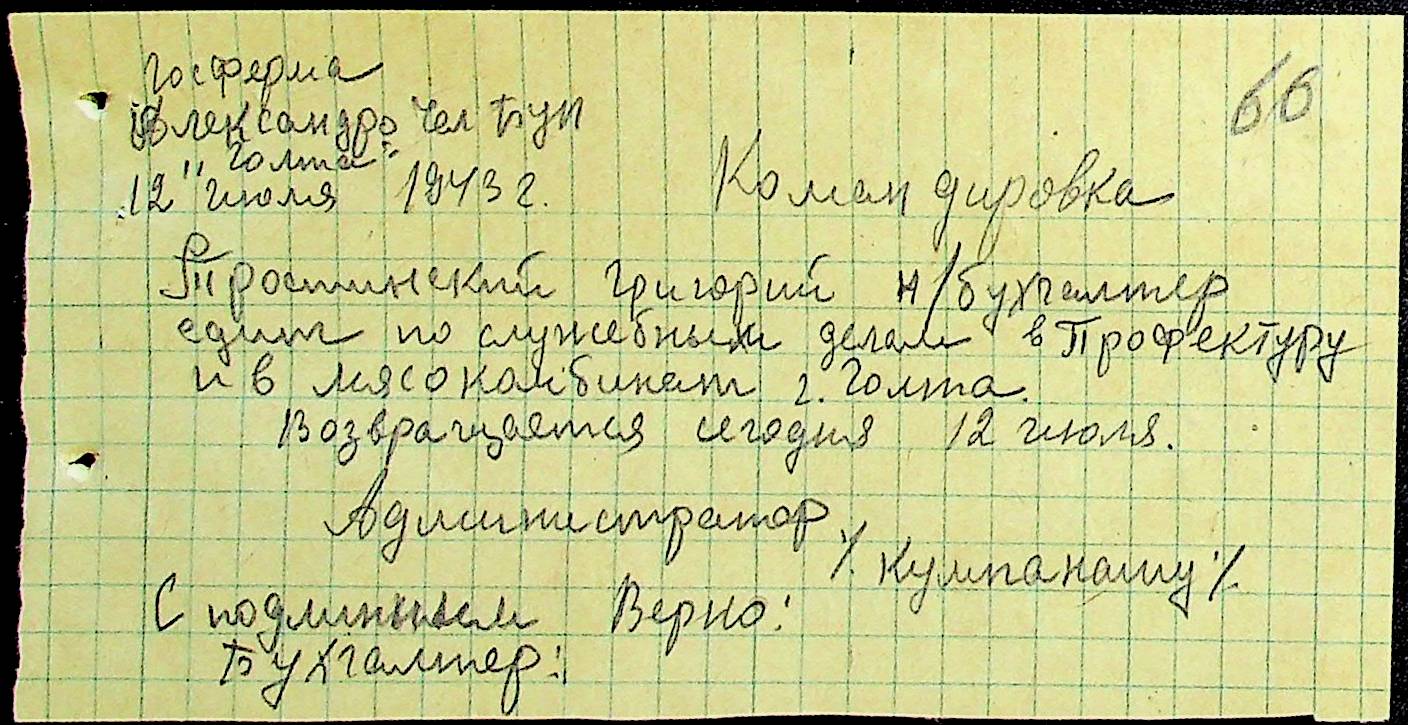 Госферма
66
Александро чел Бун
"Голта"
12 июля 1943 г.
Командировка
Тростинский Григорий н/бухгалтер
едит по служебным делам в Профектуру
и в мясокомбинат г. Голта.
Возвращается сегодня 12 июля.
Администратор
/Кумпанашу/
С подлинным Верно:
Бухгалтер: